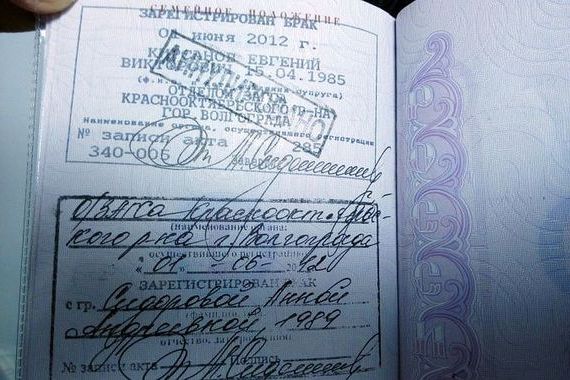 СЕМЕЙНОЕ ПОЛОЖЕНИЕ
ЗАРЕГИСТРИРОВАН БРАК
01 июня 2012 г.
ЕВГЕНИЙ
15.04.1985
ОТДЕЛОМ
КРАСНООКТЯБРЬСКОГО Р-НА
ГОР. ВОЛГОГРАДА
Наименование органа, осуществившего регистрацию
№ записи акта 285
340-006
ОЗАГСа Краснооктябрьс-
кого р-на г. Волгограда
(наименование органа:
осуществившего регистрацию)
"01" -06- 2012
ЗАРЕГИСТРИРОВАН БРАК
с гр. Сидоровой Анной
Андреевной, 1989
отчество, дата рождения)
№ записи акта Подпись